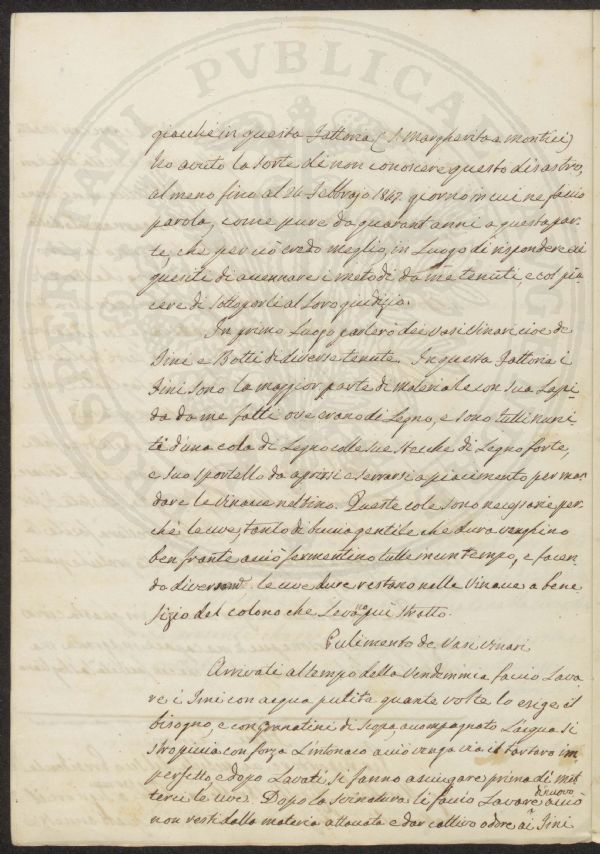 giacché in questa Fattoria (S. Margherita a Montici)
ho avuto la sorte di non conoscere questo disastro,
al meno fino al 24 Febbrajo 1847. giorno in cui ne facio
parola, come pure da quarant'anni a questa par=
te, che perciò credo meglio, in Luogo di rispondere ai
quesiti di accennare i metodi da me tenuti, e col pia=
cere di sottoporli al Loro giudizio.
In primo Luogo parlerò dei Vasi Vinari cioè di
Tini e Botti di diverse tenute. In questa Fattoria i
Tini sono la maggior parte di materiale con sua Lapi=
da da me fatti ove erano di Legno, e sono tutti muni
ti d'una cola di Legno colle sue stecche di Legno forte,
e suo sportello da aprirsi e serrarsi a piacimento per man=
dare le vinacce nel tino. Queste cole sono necessarie per
chè le uve, tanto di buccia gentile che dura venghino
ben frante acciò fermentino tutte in un tempo, e facen
do diversamte. le uve dure restano nelle Vinacce a bene
fizio del colono che Leva lo stratto.
Pulimento de Vasi Vinari
Arrivati al tempo della Vendemmia faccio Lava
re i Tini con acqua pulita quante volte lo esige il
bisogno, e con Granatini di scopa acompagnato L'acqua si
stropiccia con forza L'intonaco acciò venga via il tartaro im
perfetto e dopo Lavati, si fanno asciugare prima di met
terci le uve. Dopo la svinatura li faccio Lavare di nuovo acciò
non resti dalla materia attaccata e dar cattivo odore ai Tini